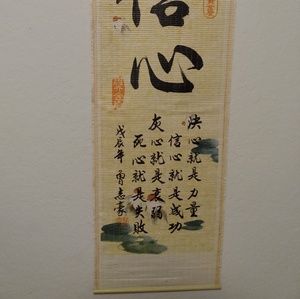 信心
決心就是力量
信心就是成功
灰心就是衰弱
死心就是失敗
戊辰年
曾志豪